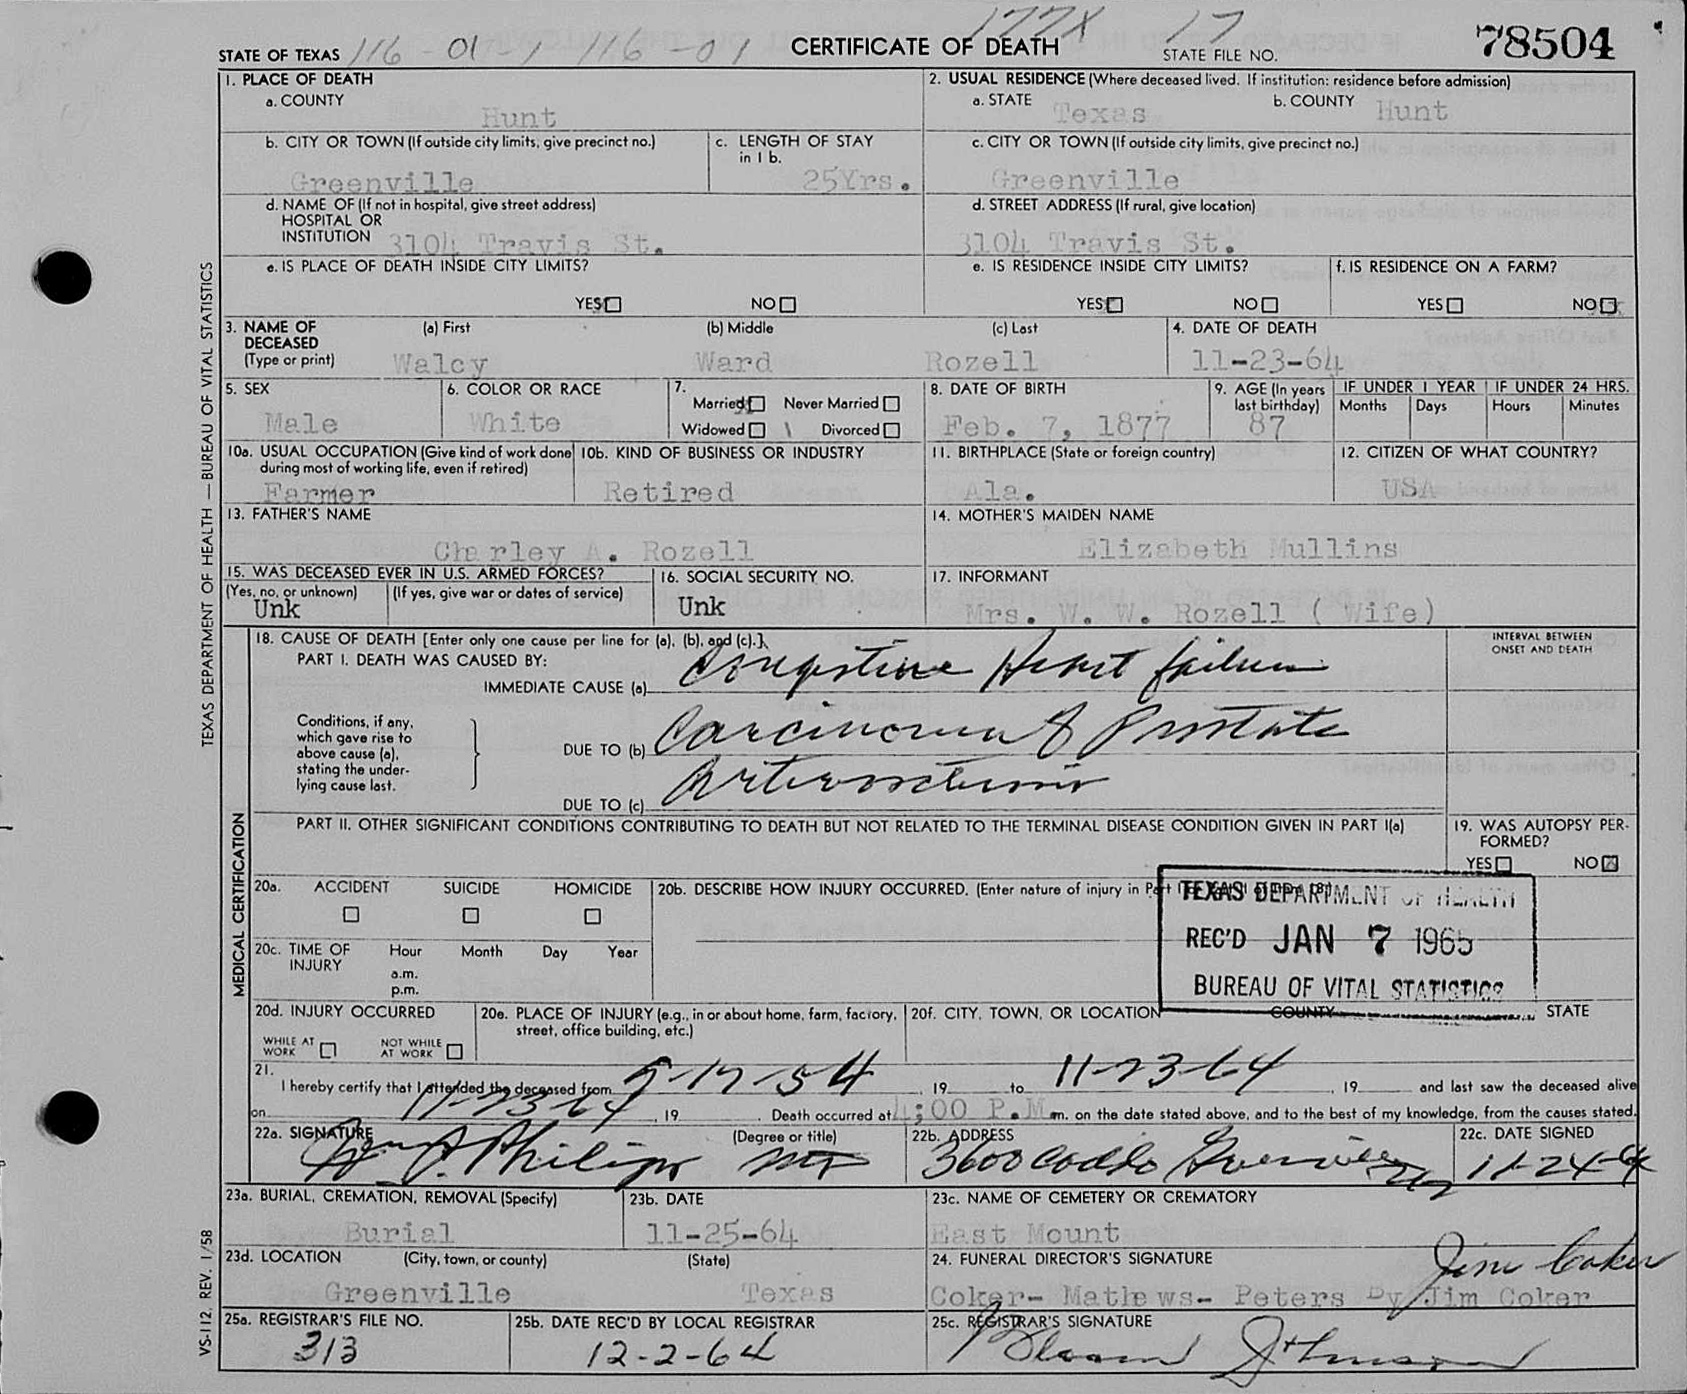 177X 17
STATE OF TEXAS 116-01-1 116-01 CERTIFICATE OF DEATH STATE FILE NO. 78504
1. PLACE OF DEATH
a. COUNTY
Hunt
2. USUAL RESIDENCE (Where deceased lived. If institution: residence before admission)
a. STATE Texas b. COUNTY Hunt
b. CITY OR TOWN (If outside city limits, give precinct no.)
Greenville
c. LENGTH OF STAY
in 1 b.
25Yrs.
c. CITY OR TOWN (If outside city limits, give precinct no.)
Greenville
d. NAME OF (If not in hospital, give street address)
HOSPITAL OR
INSTITUTION 3104 Travis St.
d. STREET ADDRESS (If rural, give location)
3104 Travis St.
e. IS PLACE OF DEATH INSIDE CITY LIMITS?
YES NO
e. IS RESIDENCE INSIDE CITY LIMITS?
YES NO
f. IS RESIDENCE ON A FARM?
YES NO
3. NAME OF
DECEASED
(Type or print)
(a) First (b) Middle (c) Last
Walcy Ward Rozell
4. DATE OF DEATH
11-23-64
5. SEX
Male
6. COLOR OR RACE
White
7.
Married Never Married
Widowed Divorced
8. DATE OF BIRTH
Feb. 7, 1877
9. AGE (In years
last birthday)
87
IF UNDER 1 YEAR IF UNDER 24 HRS.
Months Days Hours Minutes
10a. USUAL OCCUPATION (Give kind of work done
during most of working life, even if retired)
Farmer
10b. KIND OF BUSINESS OR INDUSTRY
Retired
11. BIRTHPLACE (State or foreign country)
Ala.
12. CITIZEN OF WHAT COUNTRY?
USA
13. FATHER'S NAME
Charley A. Rozell
14. MOTHER'S MAIDEN NAME
Elizabeth Mullins
15. WAS DECEASED EVER IN U.S. ARMED FORCES?
(Yes, no, or unknown) (If yes, give war or dates of service)
Unk
16. SOCIAL SECURITY NO.
Unk
17. INFORMANT
Mrs. W. W. Rozell ( Wife)
18. CAUSE OF DEATH [Enter only one cause per line for (a), (b), and (c).]
PART I. DEATH WAS CAUSED BY:
IMMEDIATE CAUSE (a) Congestive Heart failure
INTERVAL BETWEEN
ONSET AND DEATH
Conditions, if any,
which gave rise to
above cause (a),
stating the under-
lying cause last.
DUE TO (b) Carcinoma of Prostate
DUE TO (c) Arteriosclerosis
PART II. OTHER SIGNIFICANT CONDITIONS CONTRIBUTING TO DEATH BUT NOT RELATED TO THE TERMINAL DISEASE CONDITION GIVEN IN PART I(a)
19. WAS AUTOPSY PER-
FORMED?
YES NO
20a. ACCIDENT SUICIDE HOMICIDE
20b. DESCRIBE HOW INJURY OCCURRED. (Enter nature of injury in Part I or Part II of item 18.)
TEXAS DEPARTMENT OF HEALTH
REC'D JAN 7 1965
BUREAU OF VITAL STATISTICS
20c. TIME OF
INJURY
Hour Month Day Year
a.m.
p.m.
20d. INJURY OCCURRED
WHILE AT
WORK
NOT WHILE
AT WORK
20e. PLACE OF INJURY (e.g., in or about home, farm, factory,
street, office building, etc.)
20f. CITY, TOWN, OR LOCATION COUNTY STATE
21.
I hereby certify that I attended the deceased from 9-17-54, 19 to 11-23-64, 19 and last saw the deceased alive
on 11-23-64, 19 . Death occurred at 4:00 P.M m. on the date stated above, and to the best of my knowledge, from the causes stated.
22a. SIGNATURE (Degree or title)
Wm J. Philips MD
22b. ADDRESS
3600 Caddo Greenville
22c. DATE SIGNED
11-24-64
23a. BURIAL, CREMATION, REMOVAL (Specify)
Burial
23b. DATE
11-25-64
23c. NAME OF CEMETERY OR CREMATORY
East Mount
23d. LOCATION (City, town, or county) (State)
Greenville Texas
24. FUNERAL DIRECTOR'S SIGNATURE
Jim Coker
Coker- Mathews- Peters By Jim Coker
25a. REGISTRAR'S FILE NO.
313
25b. DATE REC'D BY LOCAL REGISTRAR
12-2-64
25c. REGISTRAR'S SIGNATURE
Johnson
TEXAS DEPARTMENT OF HEALTH — BUREAU OF VITAL STATISTICS
MEDICAL CERTIFICATION
VS-112, REV. 1/58